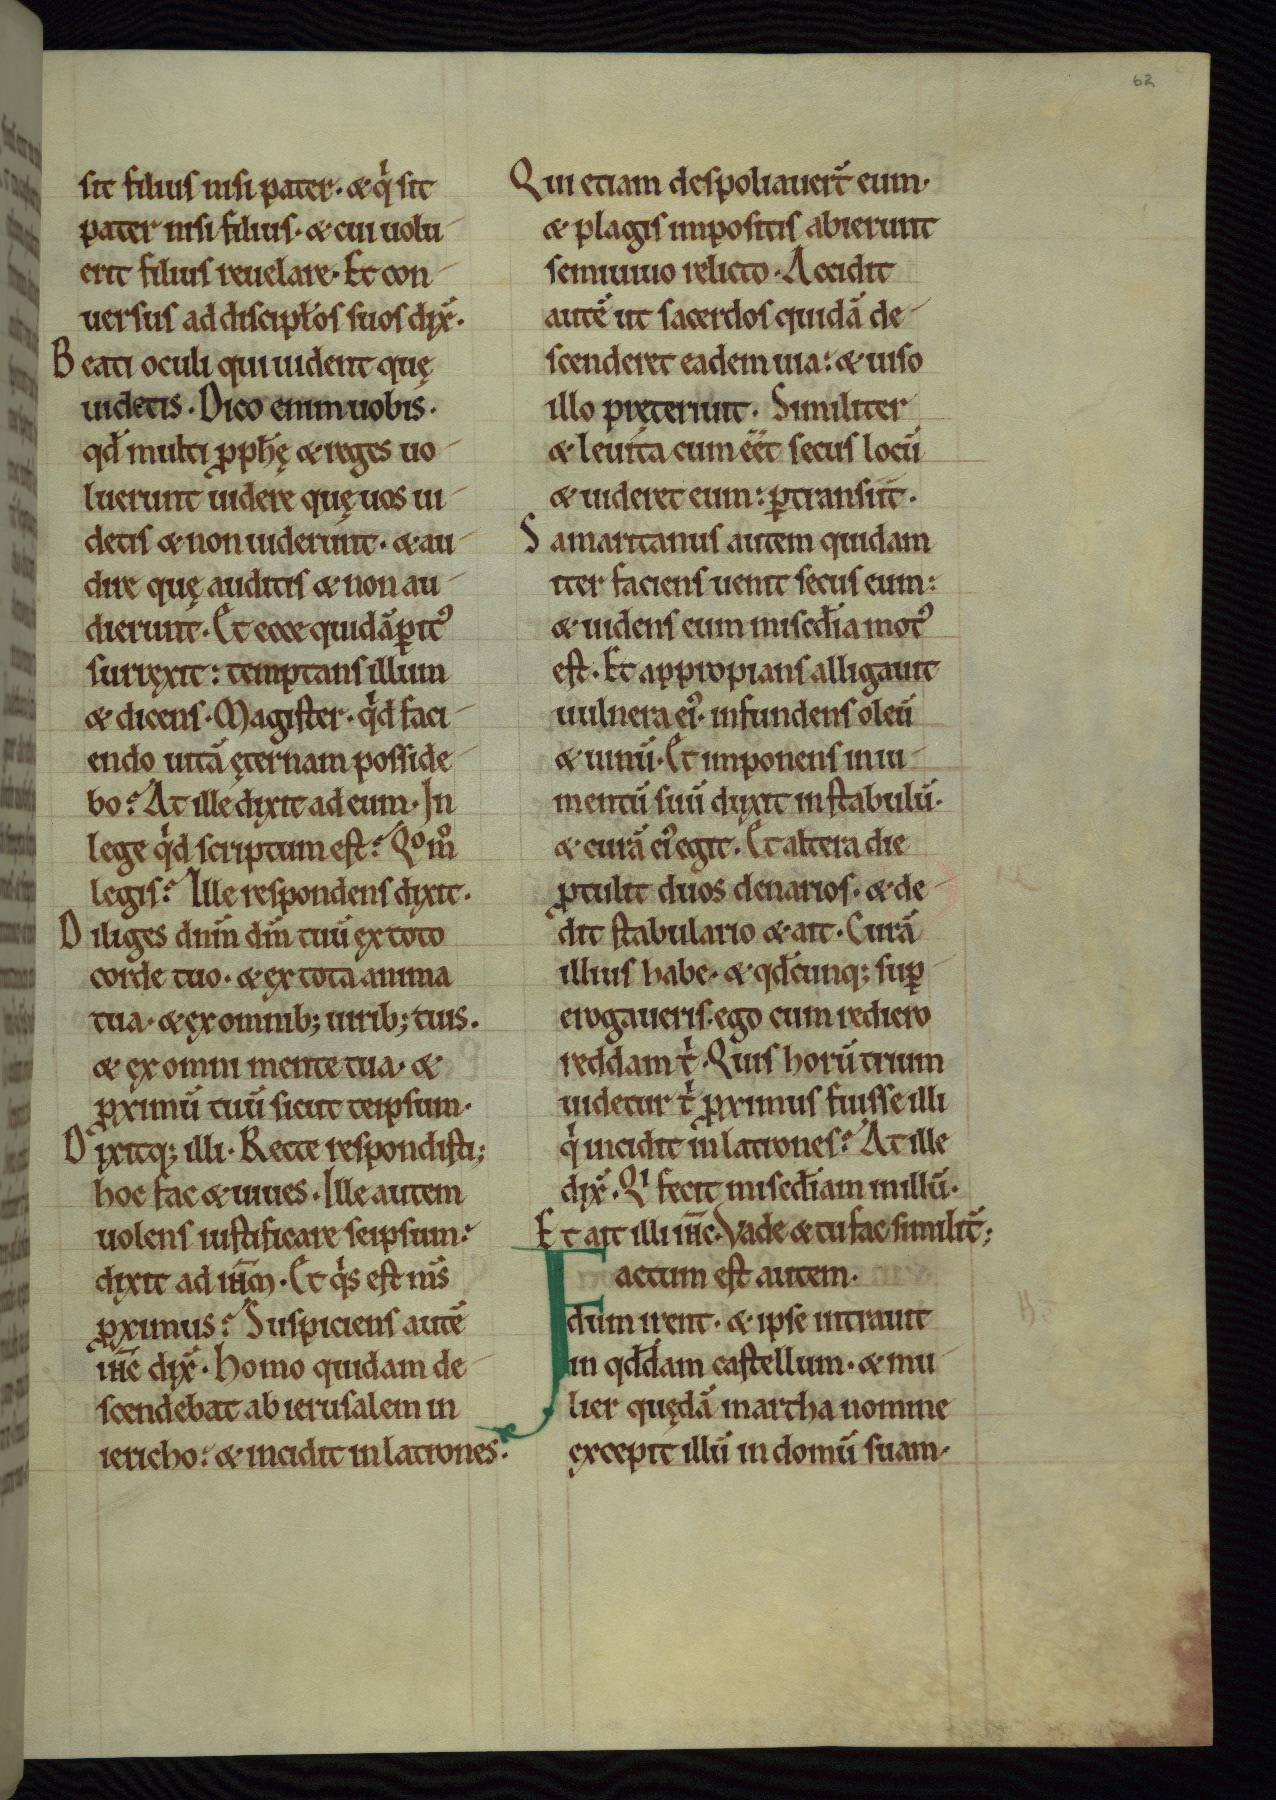 62
sit filius nisi pater· & qͥ sit
pater nisi filius· & cui uolu-
erit filius reuelare· Et con-
uersus ad discipłos suos dix̄·
Beati oculi qui uident quę
uidetis· Dico enim uobis·
qd̄ multi ꝓph̄ę & reges uo-
luerunt uidere quę uos ui-
detis & non uiderunt· & au-
dire quę auditis & non au-
dierunt· Et ecce quidā ꝑitꝰ
surrexit: temptans illum
& dicens· Magister· qͥd faci-
endo uitā ęternam posside-
bo? At ille dixit ad eum· In
lege qͥd scriptum est? Qͦ mͦ
legis? Ille respondens dixit·
Diliges dn̄m dm̄ tuū ex toto
corde tuo· & ex tota anima
tua· & ex omnib; uirib; tuis·
& ex omni mente tua· &
ꝓximū tuū sicut teipsum·
Dixitq; illi· Recte respondisti;
hoc fac & uiues· Ille autem
uolens iustificare seipsum:
dixit ad ih̄m· Et qͥs est m̄s
ꝓximus? Suspiciens autē
ih̄c dix̄· Homo quidam de-
scendebat ab ierusalem in
iericho: & incidit in latrones:
Qui etiam despoliauer̄t eum·
& plagis impositis abierunt
semiuiuo relicto· Accidit
autē ut sacerdos quidā de-
scenderet eadem uia: & uiso
illo pręteriuit· Similiter
& leuita cum eēt secus locū
& uideret eum: ꝑtransiit·
Samaritanus autem quidam
iter faciens uenit secus eum:
& uidens eum misc̄dia motꝰ
est· Et appropians alligauit
uulnera eiꝰ· infundens oleū
& uinū· Et imponens in iu-
mentū suū duxit in stabulū·
& curā eiꝰ egit· Et altera die
ꝓtulit duos denarios· & de-
dit stabulario & ait· Curā
illius habe· & qd̄cunq; suꝑ-
erogaueris· ego cum rediero
reddam tͥ· Quis horū trium
uidetur tͥ ꝓximus fuisse illi
qͥ incidit in latrones? At ille
dix̄· Qͥ fecit misc̄diam in illū·
Et ait illi ih̄c· Vade & tu fac similit̄;
Factum est autem·
dum irent· & ipse intrauit
in qd̄dam castellum· & mu-
lier quędā martha nomine
excepit illū in domū suam·